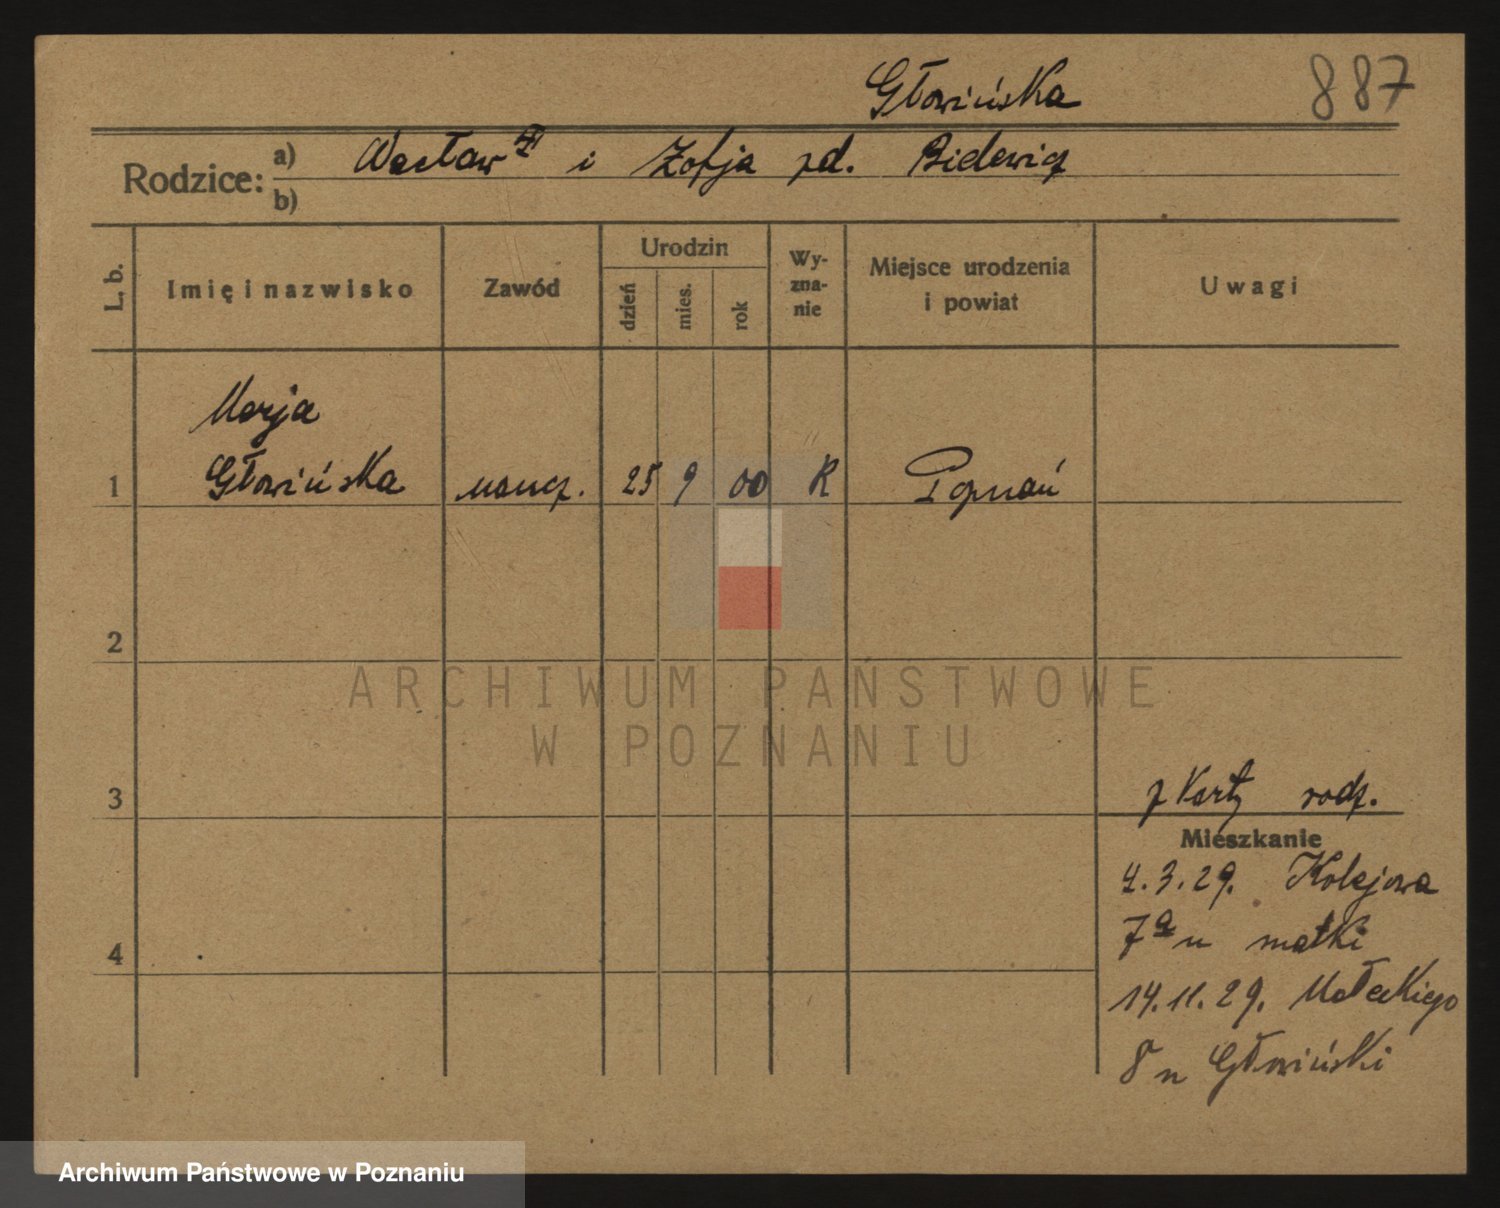 Głowińska
887
Rodzice:
a) Wacław i Zofja zd. Bielewicz
b)
L. b.
Imię i nazwisko
Zawód
Urodzin
dzień
mies.
rok
Wy-
zna-
nie
Miejsce urodzenia
i powiat
Uwagi
Marja
1 Głowińska naucz. 25 9 00 R Poznań
2
ARCHIWUM PAŃSTWOWE
W POZNANIU
3
z Karty rodz.
Mieszkanie
4.3.29. Kolejowa
7a u matki
4
14.11.29. Małeckiego
8 u Głowiński
Archiwum Państwowe w Poznaniu